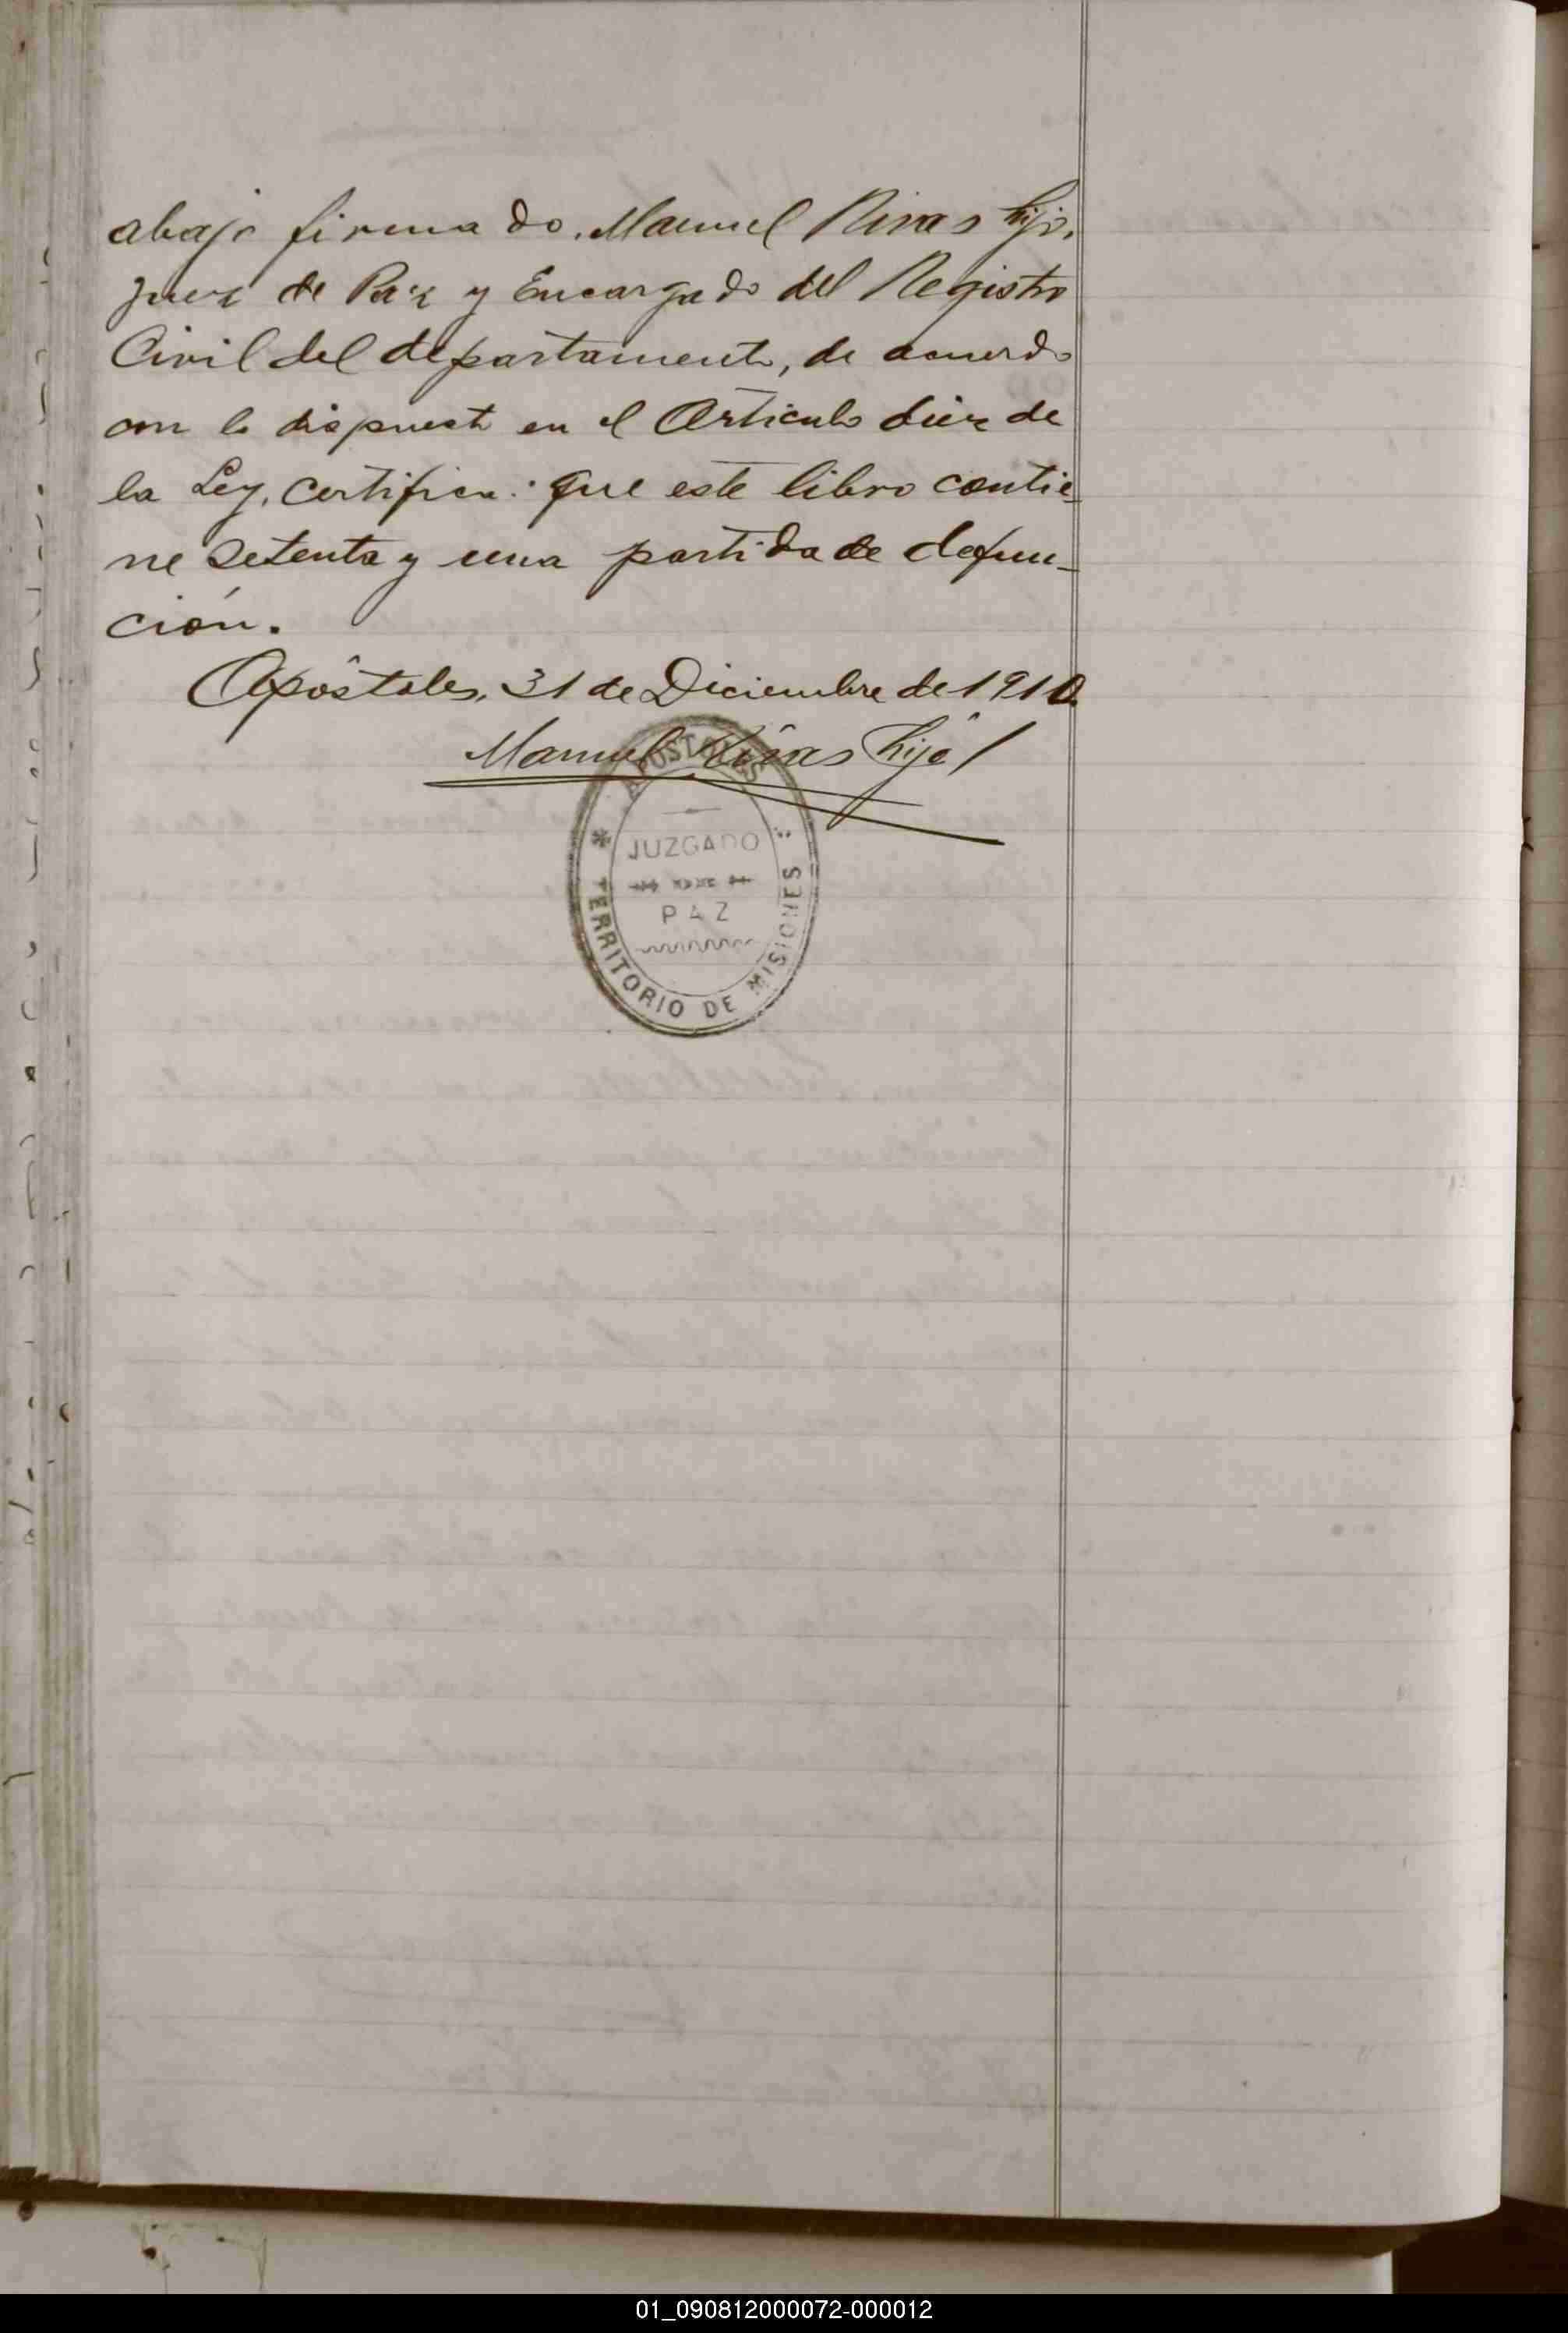 abajo firmado, Manuel Rivas hijo,
Juez de Paz y Encargado del Registro
Civil del departamento, de acuerdo
con lo dispuesto en el Articulo diez de
la Ley, Certifica: que este libro contie-
ne Setenta y una partida de defun-
ción.
Apóstoles, 31 de Diciembre de 1910.
Manuel Rivas hijo
APOSTOLES
JUZGADO
PAZ
TERRITORIO DE MISIONES
01_090812000072-000012